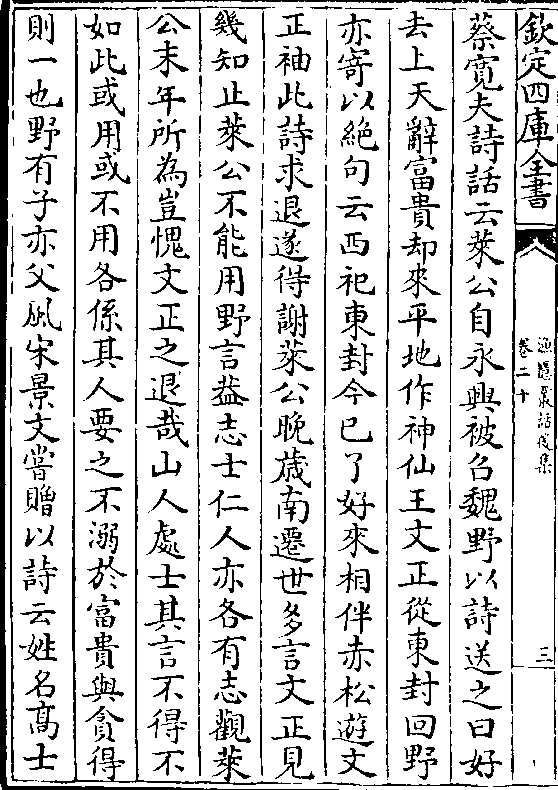 欽定四庫全書
漁隱叢話後集
卷二十
三
蔡寛夫詩話云萊公自永興被召魏野以詩送之曰好
去上天辭富貴却來平地作神仙王文正從東封回野
亦寄以絶句云西祀東封今已了好來相伴赤松遊文
正袖此詩求退遂得謝萊公晚歳南遷世多言文正見
幾知止萊公不能用野言葢志士仁人亦各有志觀萊
公末年所為豈愧文正之退哉山人處士其言不得不
如此或用或不用各係其人要之不溺於富貴與貪得
則一也野有子亦父風宋景文嘗贈以詩云姓名高士